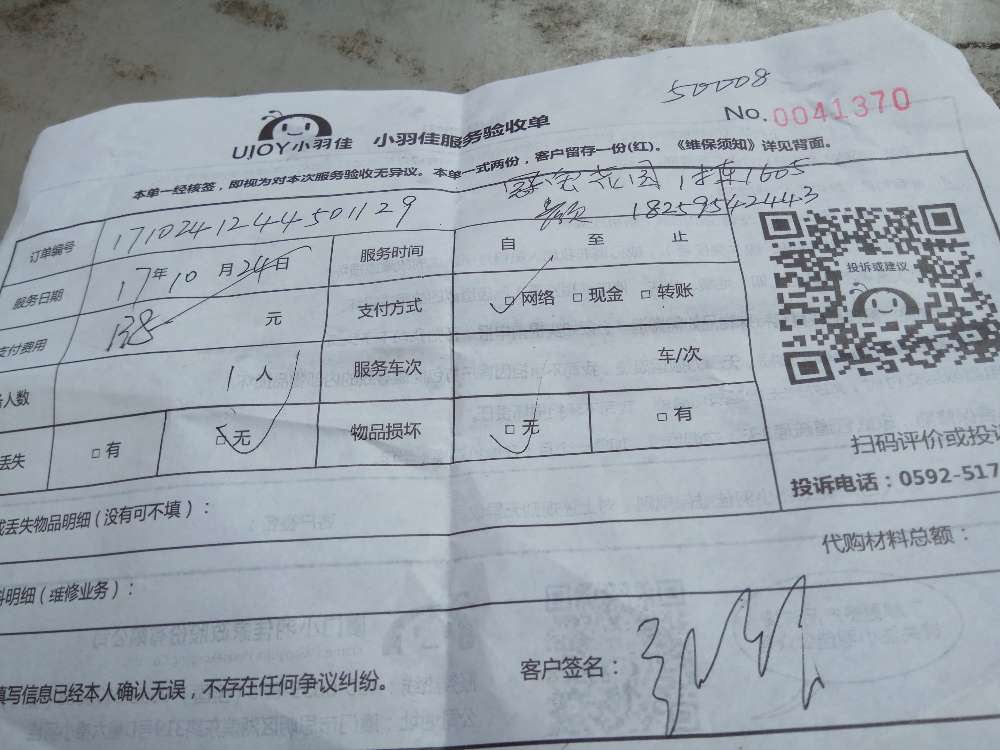 50008
No. 0041370
UJOY小羽佳 小羽佳服务验收单
本单一经核签，即视为对本次服务验收无异议。本单一式两份，客户留存一份(红)。《维保须知》详见背面。
花园 1605
18259542443
订单编号 1710241244501129
服务日期 17年10月24日 服务时间 自 至 止
支付费用 138 元 支付方式 □网络 □现金 □转账
人数 1人 服务车次 车/次
丢失 □有 □无 物品损坏 □无 □有
投诉或建议
扫码评价或投诉
投诉电话：0592-517
丢失物品明细（没有可不填）：
代购材料总额：
料明细（维修业务）：
填写信息已经本人确认无误，不存在任何争议纠纷。
客户签名：